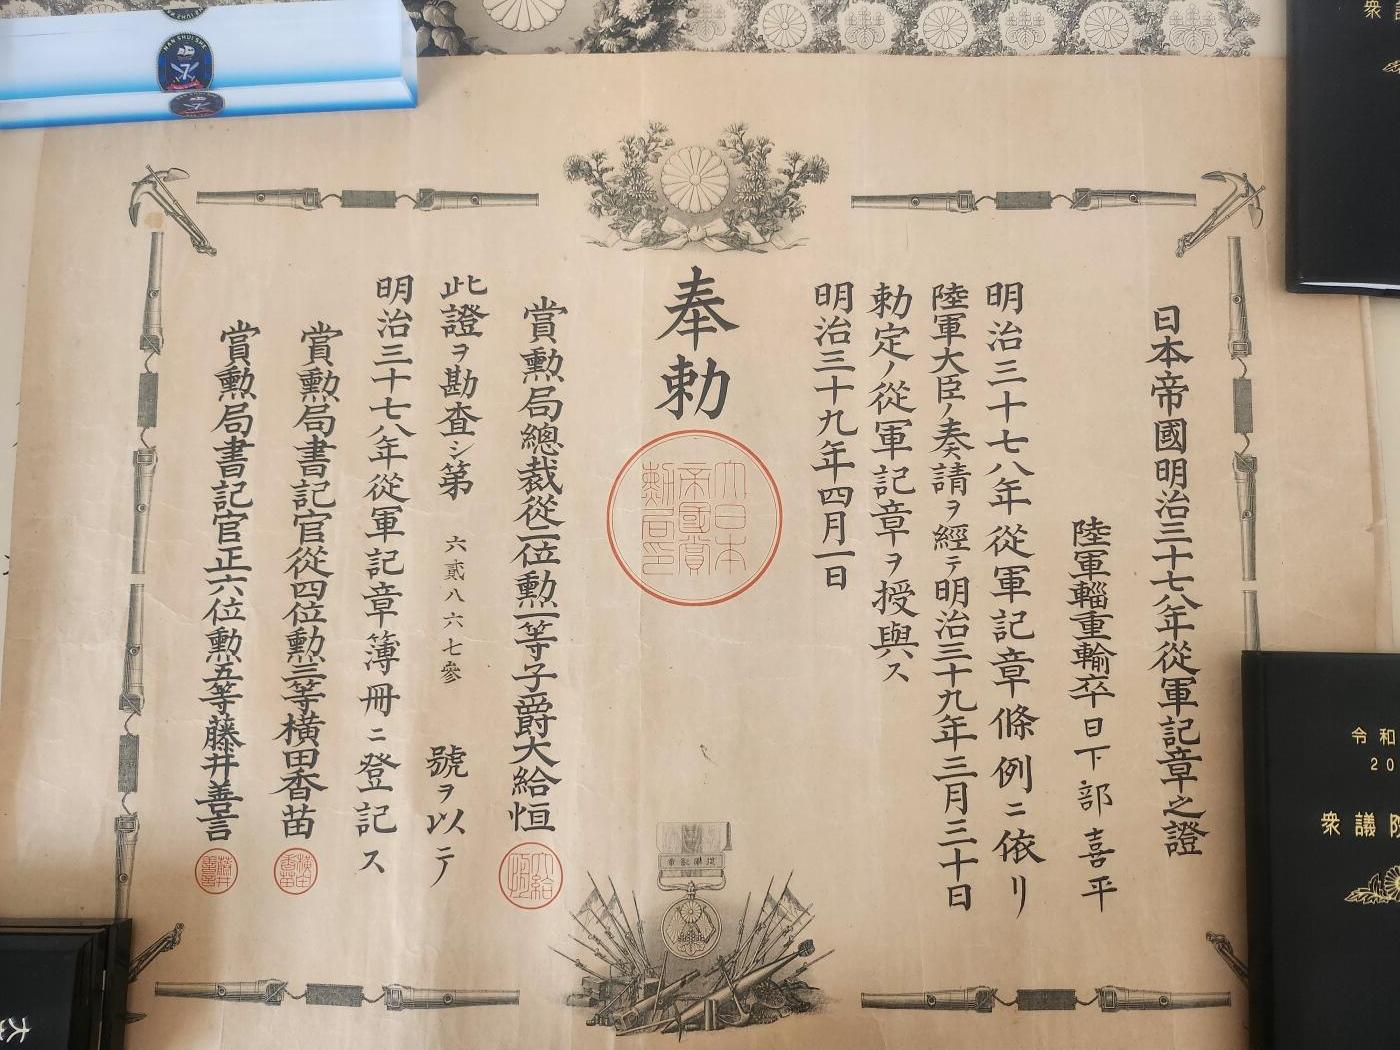 日本帝國明治三十七八年從軍記章之證
陸軍輜重輸卒日下部喜平
明治三十七八年從軍記章條例ニ依リ
陸軍大臣ノ奏請ヲ經テ明治三十九年三月三十日
勅定ノ從軍記章ヲ授與ス
明治三十九年四月一日
奉勅
大日本
帝國賞
勲局印
賞勲局總裁從二位勲一等子爵大給恒
大給
恒
此證ヲ勘査シ第六貳八六七參號ヲ以テ
明治三十七八年從軍記章簿冊ニ登記ス
賞勲局書記官從四位勲三等横田香苗
横田
香苗
賞勲局書記官正六位勲五等藤井善言
藤井
善言
章記軍從
令和
20
衆議院
衆